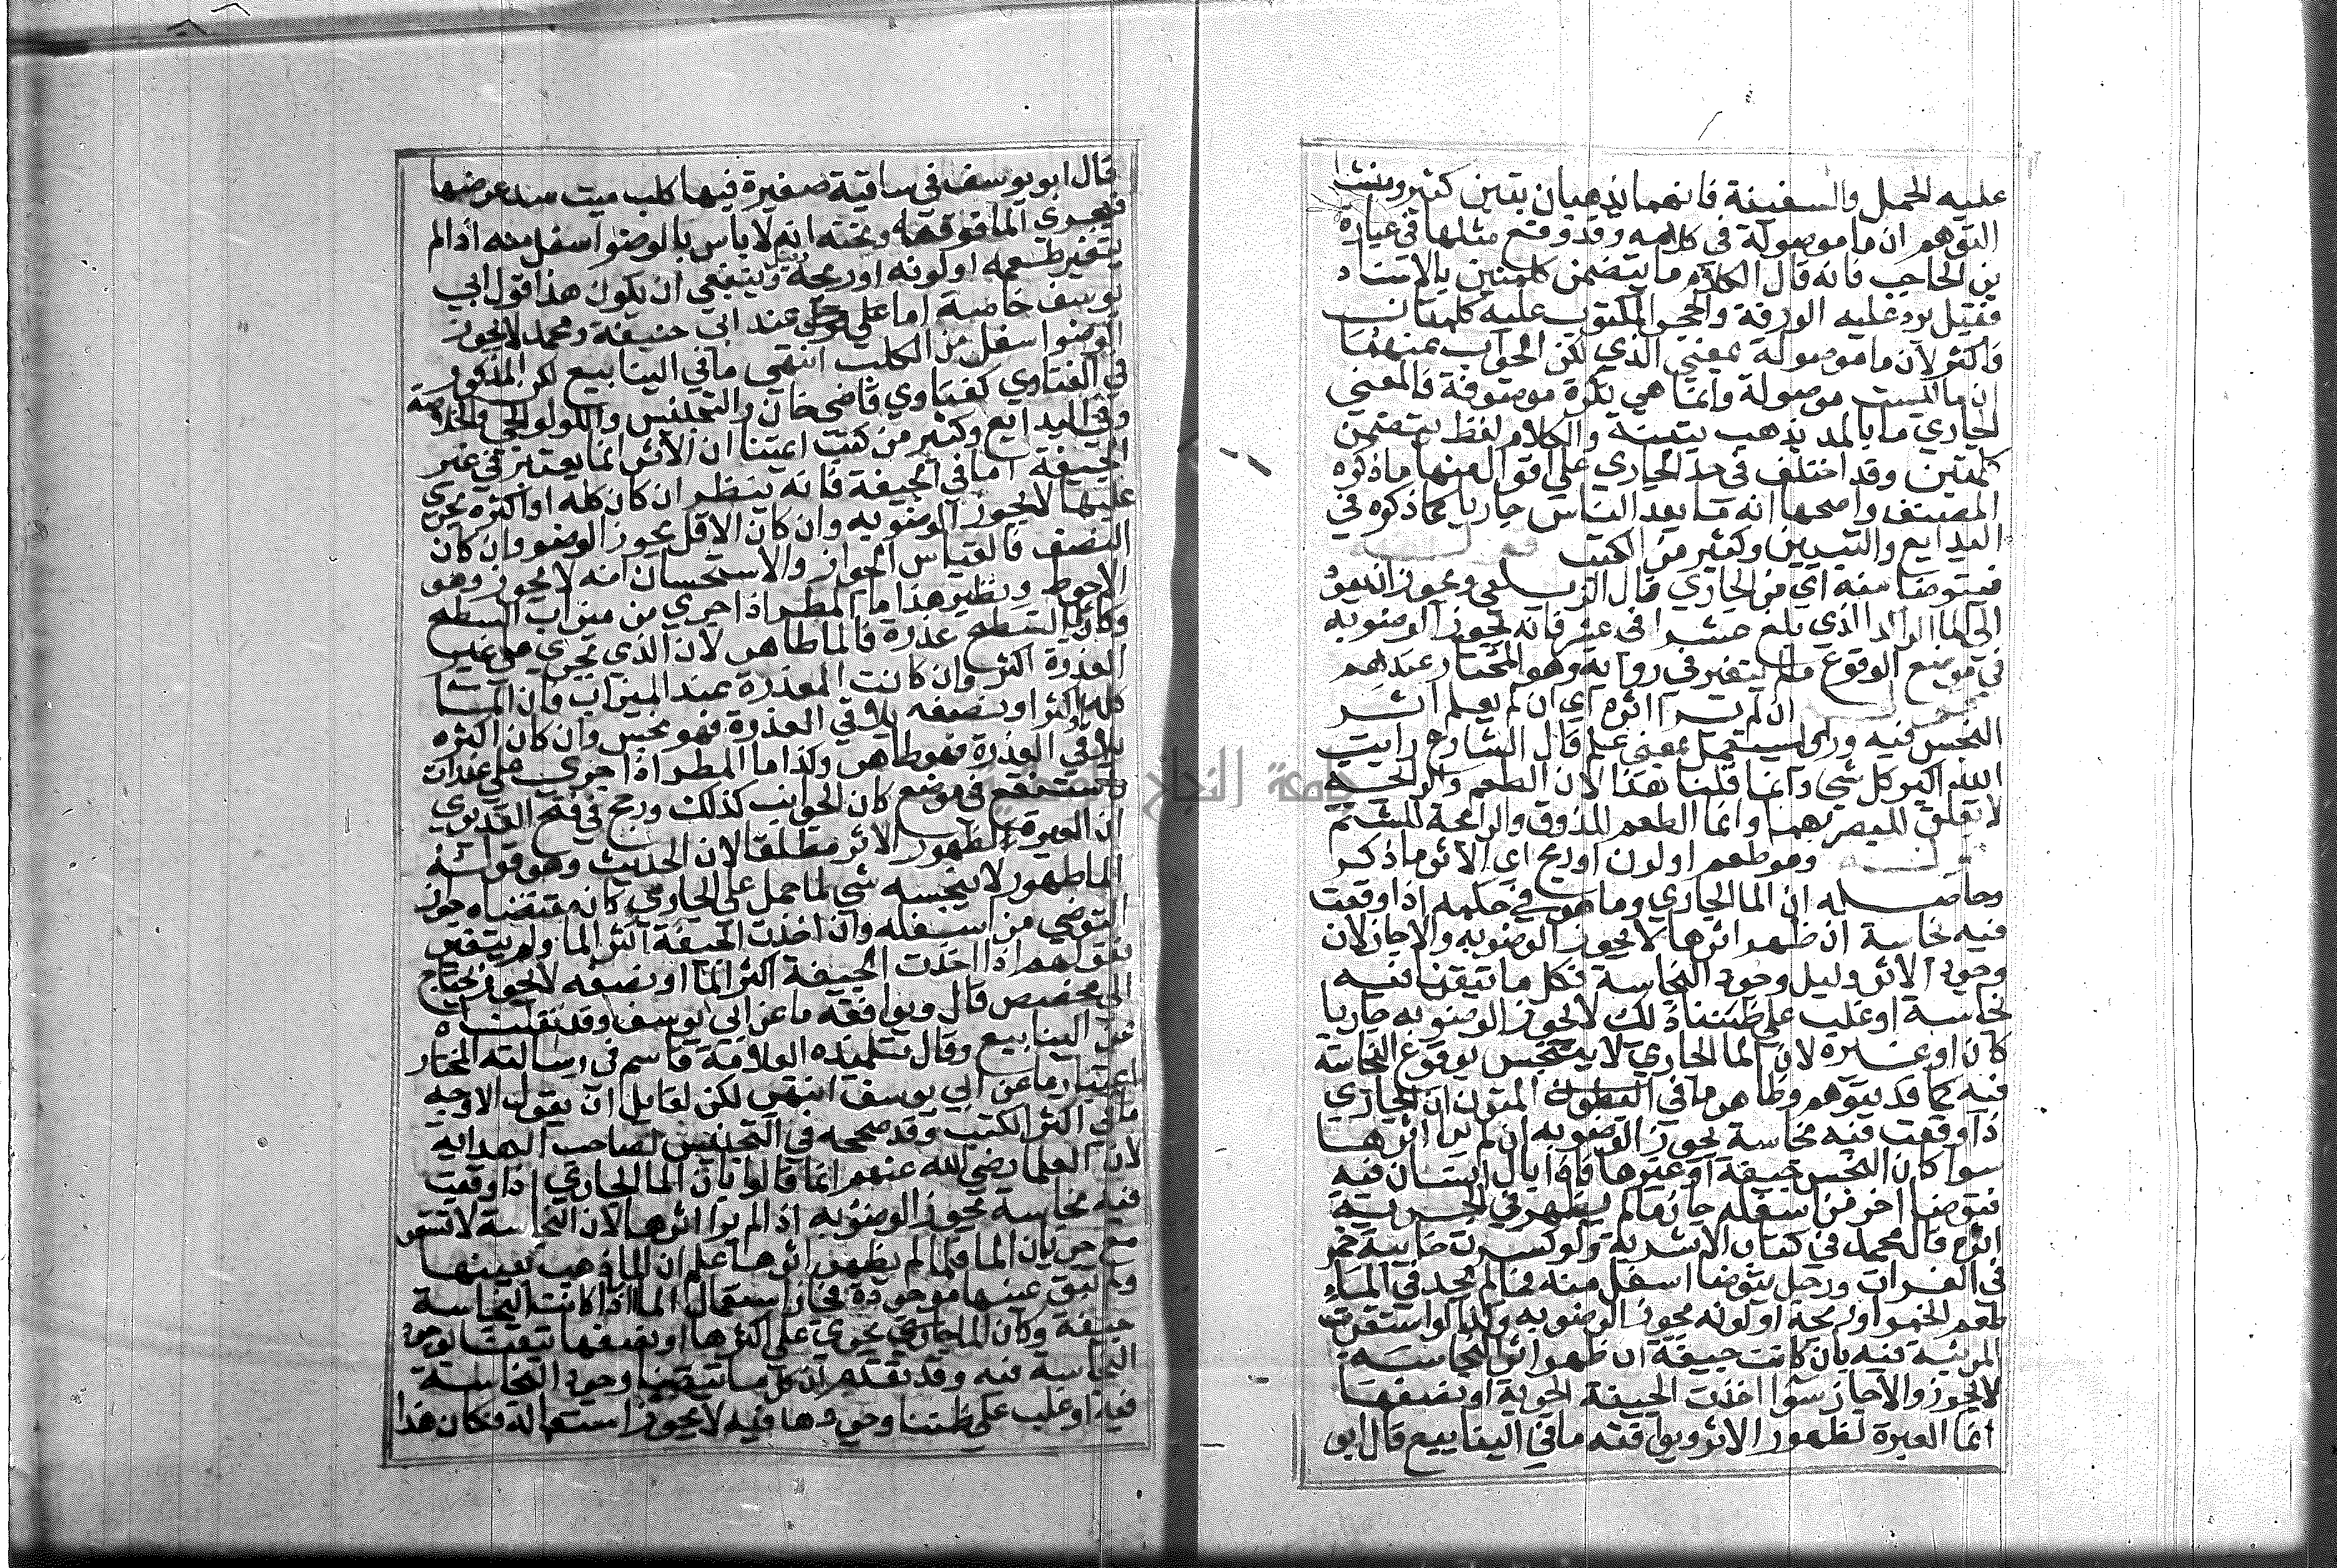 عليه الجمل والسفينة فانهما يذهبان بتبن كثير ومنشا
التوهم ان ما موصولة في كلامه وقد وقع مثلها في عبارة
بن الحاجب فانه قال الكلام ما يتضمن كلمتين بالاسناد
فقيل يرد عليه الورقة والحجر المكتوب عليه كلمتان
فاكثر لان ما موصولة بمعني الذي لكن الجواب عنهما
ان ما ليست موصولة وانما هي نكرة موصوفة فالمعني
الجاري ما بالمد يذهب بتبنة والكلام لفظ يتضمن
كلمتين وقد اختلف في حد الجاري علي اقوال منها ما ذكره
المصنف واصحها انه ما يعد الناس جاريا كما ذكره في
البدايع والتبيين وكثير من الكتب
فيتوضا منه اي من الجاري قال الزيلعي ويجوز ان يعود
الى الما الراكد الذي بلغ عشرا في عشر فانه يجوز الوضو به
في موضع الوقوع ما لم يتغير في رواية وهو المختار عندهم
ان لم ير اثره اي ان لم يعلم اثر
النجس فيه وراي يستعمل بمعني علم قال الشاعر رايت
الله اكبر كل شي وانما قلنا هذا لان الطعم والرايحة
لا تعلق للبصر بهما وانما الطعم للذوق والرايحة للشم
وهو طعم او لون او ريح اي الاثر ما ذكر
وحاصله ان الما الجاري وما هو في حكمه اذا وقعت
فيه نجاسة ان ظهر اثرها لا يجوز الوضو به والا جاز لان
وجود الاثر دليل وجود النجاسة فكل ما تيقنا فيه
نجاسة او غلب على ظننا ذلك لا يجوز الوضو به جاريا
كان او غيره لان الما الجاري لا يتنجس بوقوع النجاسة
فيه كما قد يتوهم وظاهر ما في المتون ان الجاري
اذا وقعت فيه نجاسة يجوز الوضو به ان لم ير اثرها
سوا كان النجس جيفة او غيرها فاذا بال انسان فيه
فتوضا اخر من اسفله جاز ما لم يظهر في الجرية
اثره قال محمد في كتاب الاشربة ولو كسرت خابية خمر
في الفرات ورجل يتوضا اسفل منه فما لم يجد في الماء
طعم الخمر او ريحه او لونه يجوز الوضو به وكذا لو استقرت
المرئية فيه بان كانت جيفة ان ظهر اثر النجاسة
لا يجوز والا جاز سوا اخذت الجيفة الجرية او نصفها
انما العبرة لظهور الاثر ويوافقه ما في الينابيع قال ابو
قال ابو يوسف في ساقية صغيرة فيها كلب ميت سد عرضها
فيجري الما فوقه وتحته انه لا باس بالوضو اسفل منه اذا لم
يتغير طعمه او لونه او ريحه وينبغي ان يكون هذا قول ابي
يوسف خاصة اما علي قول عند ابي حنيفة ومحمد لا يجوز
الوضو اسفل من الكلب انتهي ما في الينابيع لكن المذكور
في الفتاوي كفتاوي قاضي خان والتجنيس والولوالجي والخلاصة
وفي البدايع وكثير من كتب ايمتنا ان الاثر انما يعتبر في غير
الجيفة اما في الجيفة فانه ينظر ان كان كله او اكثره يجري
عليها لا يجوز الوضو به وان كان الاقل يجوز الوضو وان كان
النصف فالقياس الجواز والاستحسان انه لا يجوز وهو
الاحوط ونظير هذا ما المطر اذا جري من ميزاب السطح
وكان على السطح عذرة فالما طاهر لان الذي يجري على غير
العذرة اكثر وان كانت العذرة عند الميزاب فان الما
كله او اكثره او نصفه يلاقي العذرة فهو نجس وان كان اكثره
يلاقي العذرة فهو طاهر وكذا ما المطر اذا جري علي عذرات
واستنقع في موضع كان الجواب كذلك ورجح في فتح القدير
ان العبرة لظهور الاثر مطلقا لان الحديث وهو قوله
الما طهور لا ينجسه شي لما حمل علي الجاري كان مقتضاه جواز
التوضي من اسفله وان اخذت الجيفة اكثر الما ولم يتغير
فقولهم اذا اخذت الجيفة اكثر الما او نصفه لا يجوز يحتاج
الي مخصص قال ويوافقه ما عن ابي يوسف وقد نقلناه
عن الينابيع وقال تلميذه العلامة قاسم في رسالته المختار
اعتبار ما عن ابي يوسف انتهي لكن لقايل ان يقول الاوجه
ما في اكثر الكتب وقد صححه في التجنيس لصاحب الهداية
لان العلما رضي الله عنهم انما قالوا بان الما الجاري اذا وقعت
فيه نجاسة يجوز الوضو به اذا لم ير اثرها لان النجاسة لا تستقر
مع جريان الما فلما لم يظهر اثرها علم ان الما ذهب بعينها
ولم يبق عينها موجودة فجاز استعمال الما اذا كانت النجاسة
جيفة وكان الما الجاري يجري علي اكثرها او نصفها تيقنا بوجود
النجاسة فيه وقد تقدم ان كل ما تيقنا وجود النجاسة
فيه او غلب علي ظننا وجودها فيه لا يجوز استعماله فكان هذا